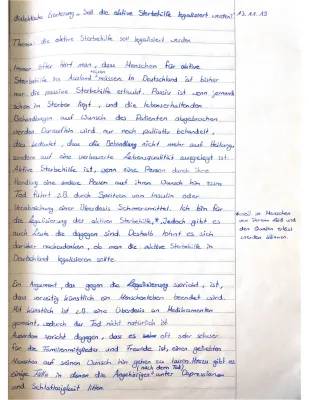 dialektische Erörterung - Soll die aktive Sterbehilfe legalisiert werden?
13.11.19
Thema: die aktive Sterbehilfe soll legalisiert werden
Immer öfter hört man, dass Menschen für aktive
Sterbehilfe ins Ausland müssen. In Deutschland ist bisher
nur die passive Sterbehilfe erlaubt. Passiv ist wenn jemand
schon im Sterben liegt, und die lebenserhaltenden
Behandlungen auf Wunsch des Patienten abgebrochen
werden. Daraufhin wird nur noch palliativ behandelt,
das bedeutet, dass die Behandlung nicht mehr auf Heilung,
sondern auf eine verbesserte Lebensqualität ausgelegt ist.
Aktive Sterbehilfe ist, wenn eine Person durch ihre
Handlung eine andere Person auf ihren Wunsch hin zum
Tod führt z.B. durch Spritzen von Insulin oder
Verabreichung einer Überdosis Schmerzmittel. Ich bin für
die Legalisierung der aktiven Sterbehilfe,* Jedoch gibt es
auch Leute die dagegen sind. Deshalb lohnt es sich
darüber nachzudenken, ob man die aktive Sterbehilfe in
Deutschland legalisieren sollte.
*weil so Menschen
von ihrem Leid und
den Qualen erlöst
werden können.
Ein Argument, das gegen die Legalisierung spricht, ist,
dass vorzeitig künstlich ein Menschenleben beendet wird.
Mit künstlich ist z.B. eine Überdosis an Medikamenten
gemeint, wodurch der Tod nicht natürlich ist.
Außerdem spricht dagegen, dass es oft sehr schwer
für die Familienmitglieder und Freunde ist, einen geliebten
Menschen auf seinen Wunsch hin gehen zu lassen. Hierzu gibt es
(nach dem Tod)
einige Fälle in denen die Angehörigen unter Depressionen
und Schlaflosigkeit litten.